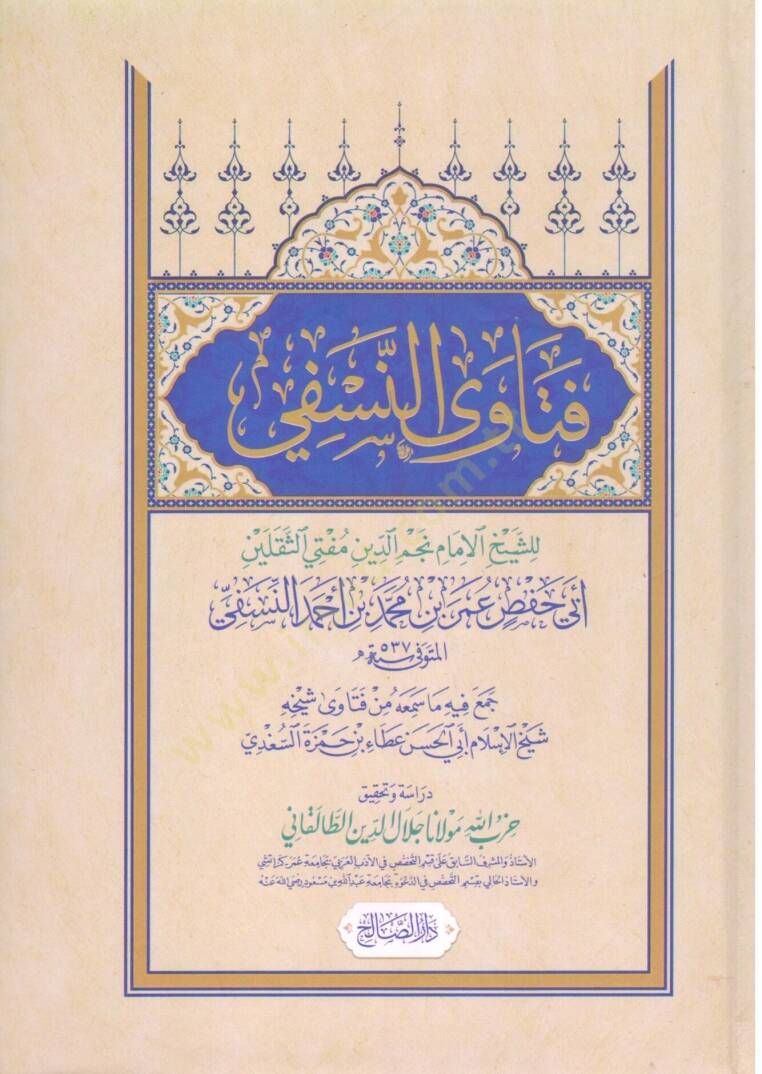 فَتَاوَى النَّسَفِي
لِلشَّيْخِ الإِمَامِ نَجْمِ الدِّينِ مُفْتِي الثَّقَلَيْنِ
أَبِي حَفْصٍ عُمَرَ بْنِ مُحَمَّدِ بْنِ أَحْمَدَ النَّسَفِيِّ
المتوفى سنة ٥٣٧هـ
جَمَعَ فِيهِ مَا سَمِعَهُ مِنْ فَتَاوَى شَيْخِهِ
شَيْخِ الإِسْلَامِ أَبِي الحَسَنِ عَطَاءِ بْنِ حَمْزَةَ السُّغْدِيِّ
دراسة وتحقيق
حِزْبُ اللهِ مَوْلَانَا جَلَالُ الدِّينِ الطَّالْقَانِي
الأستاذ والمشرف السابق على قسم التخصص في الأدب العربي بجامعة عمر كراتشي
والأستاذ الحالي بقسم التخصص في الدعوة بجامعة عبد الله بن مسعود رضي الله عنه
دَارُ الصَّالِح